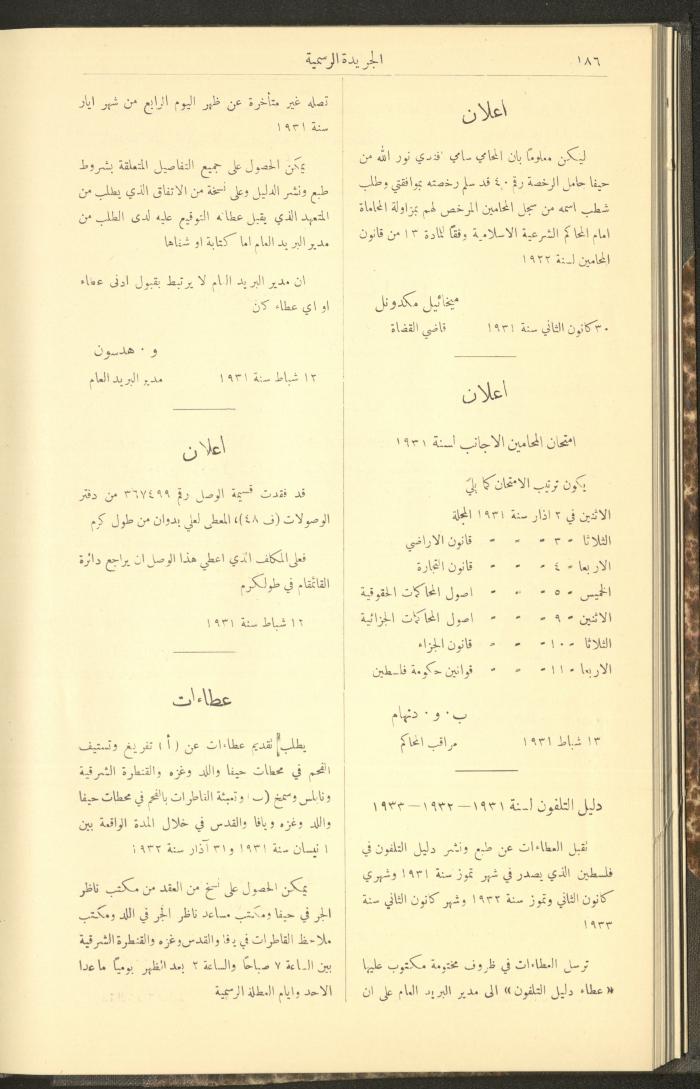 ١٨٦
الجريدة الرسمية
اعلان
ليكن معلوماً بان المحامي سامي افندي نور الله من
حيفا حامل الرخصة رقم ٤٠ قد سلم رخصته بموافقتي وطلب
شطب اسمه من سجل المحامين المرخص لهم بمزاولة المحاماة
امام المحاكم الشرعية الاسلامية وفقاً للمادة ١٣ من قانون
المحامين لسنة ١٩٢٢
ميخائيل مكدونل
٣٠ كانون الثاني سنة ١٩٣١ قاضي القضاة
اعلان
امتحان المحامين الاجانب لسنة ١٩٣١
يكون ترتيب الامتحان كما يلي
الاثنين في ٢ اذار سنة ١٩٣١ المجلة
الثلاثا » ٣ » » » قانون الاراضي
الاربعا » ٤ » » » قانون التجارة
الخميس » ٥ » » » اصول المحاكمات الحقوقية
الاثنين » ٩ » » » اصول المحاكمات الجزائية
الثلاثا » ١٠ » » » قانون الجزاء
الاربعا » ١١ » » » قوانين حكومة فلسطين
ب . و . دتهام
١٣ شباط ١٩٣١ مراقب المحاكم
دليل التلفون لسنة ١٩٣١ — ١٩٣٢ — ١٩٣٣
تقبل العطاءات عن طبع ونشر دليل التلفون في
فلسطين الذي يصدر في شهر تموز سنة ١٩٣١ وشهري
كانون الثاني وتموز سنة ١٩٣٢ وشهر كانون الثاني سنة
١٩٣٣
ترسل العطاءات في ظروف مختومة مكتوب عليها
«عطاء دليل التلفون» الى مدير البريد العام على ان
تصله غير متأخرة عن ظهر اليوم الرابع من شهر ايار
سنة ١٩٣١
يمكن الحصول على جميع التفاصيل المتعلقة بشروط
طبع ونشر الدليل وعلى نسخة من الاتفاق الذي يطلب من
المتعهد الذي يقبل عطاءه التوقيع عليه لدى الطلب من
مدير البريد العام اما كتابة او شفاها
ان مدير البريد العام لا يرتبط بقبول ادنى عطاء
او اي عطاء كان
و . هدسون
١٢ شباط سنة ١٩٣١ مدير البريد العام
اعلان
قد فقدت قسيمة الوصل رقم ٣٦٧٤٩٩ من دفتر
الوصولات (ف ٤٨)، المعطى لعلي بدوان من طول كرم
فعلى المكلف الذي اعطي هذا الوصل ان يراجع دائرة
القائمقام في طولكرم
١٢ شباط سنة ١٩٣١
عطاءات
يطلب تقديم عطاءات عن (أ) تفريغ وتستيف
الفحم في محطات حيفا واللد وغزه والقنطرة الشرقية
ونابلس وسمخ (ب) وتعبئة القاطرات بالفحم في محطات حيفا
واللد وغزه ويافا والقدس في خلال المدة الواقعة بين
١ نيسان سنة ١٩٣١ و٣١ آذار سنة ١٩٣٢
يمكن الحصول على نسخ من العقد من مكتب ناظر
الجر في حيفا ومكتب مساعد ناظر الجر في اللد ومكتب
ملاحظ القاطرات في يافا والقدس وغزه والقنطرة الشرقية
بين الساعة ٧ صباحاً والساعة ٢ بعد الظهر يومياً ما عدا
الاحد وايام العطلة الرسمية